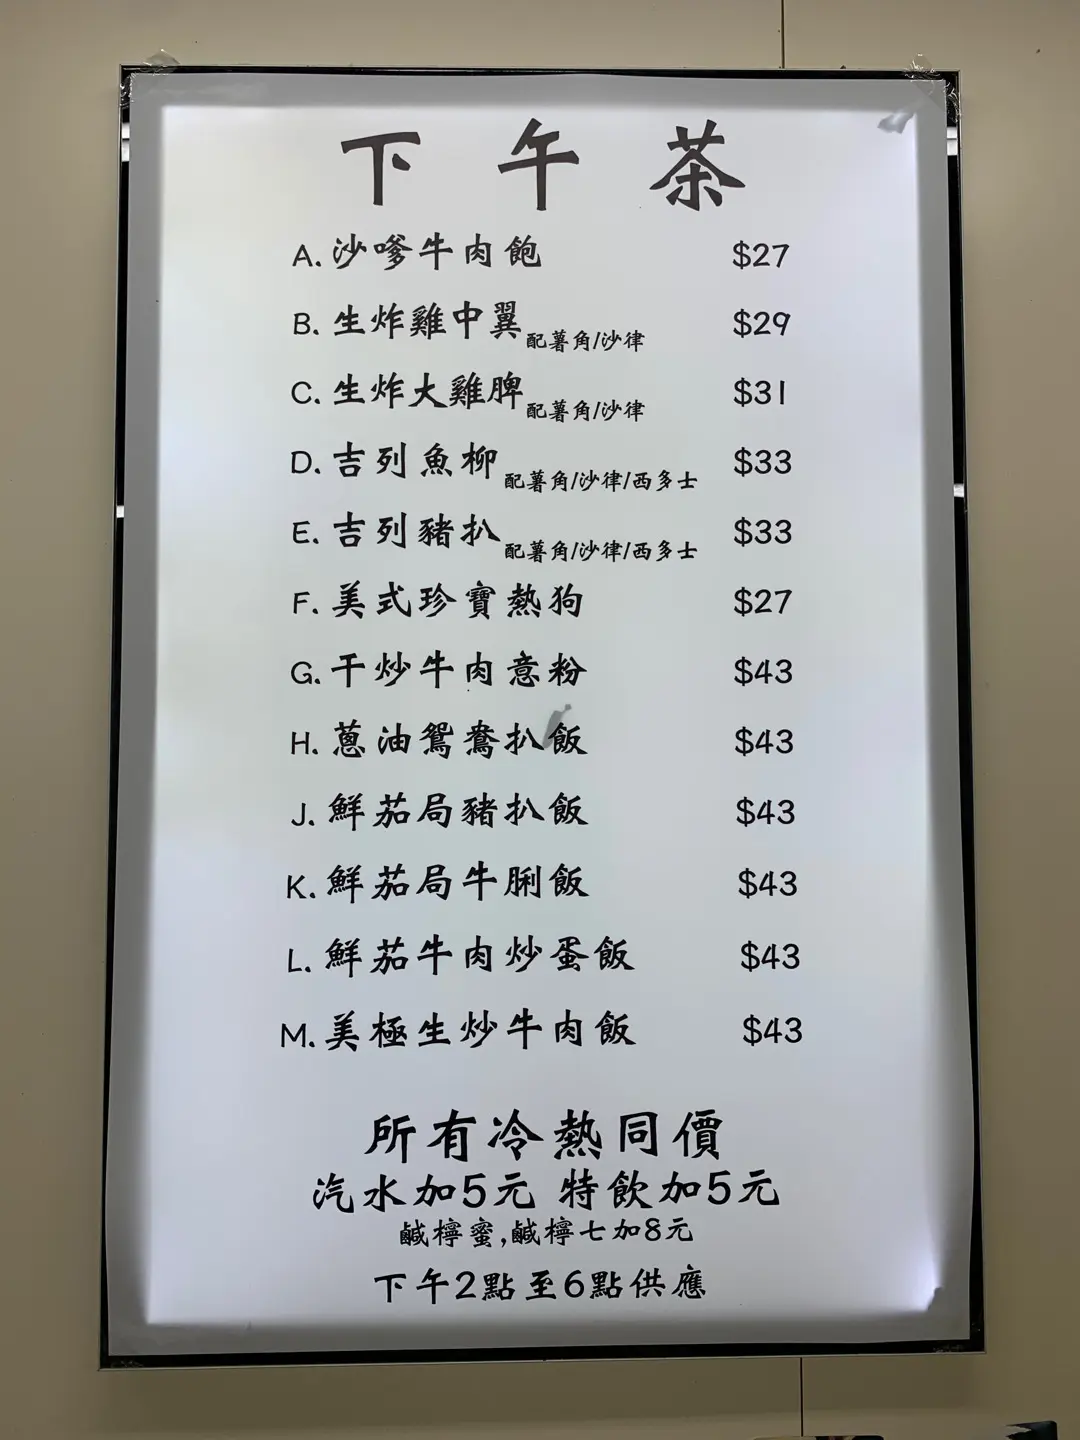 下午茶
A. 沙嗲牛肉飽 $27
B. 生炸雞中翼 配薯角/沙律 $29
C. 生炸大雞脾 配薯角/沙律 $31
D. 吉列魚柳 配薯角/沙律/西多士 $33
E. 吉列豬扒 配薯角/沙律/西多士 $33
F. 美式珍寶熱狗 $27
G. 干炒牛肉意粉 $43
H. 蔥油鴛鴦扒飯 $43
J. 鮮茄局豬扒飯 $43
K. 鮮茄局牛脷飯 $43
L. 鮮茄牛肉炒蛋飯 $43
M. 美極生炒牛肉飯 $43
所有冷熱同價
汽水加5元 特飲加5元
鹹檸蜜,鹹檸七加8元
下午2點至6點供應